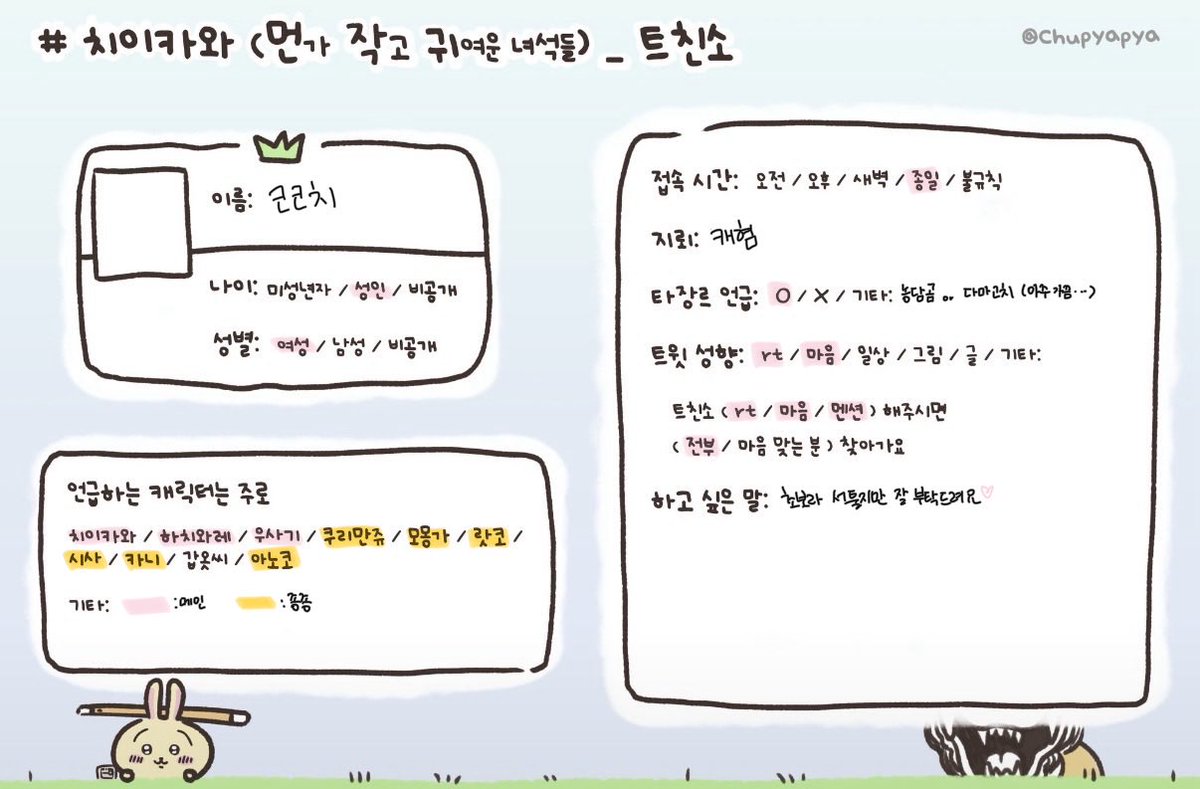 # 치이카와 (먼가 작고 귀여운 녀석들) _ 트친소
@Chupyapya
이름: 코코치
나이: 미성년자 / 성인 / 비공개
성별: 여성 / 남성 / 비공개
언급하는 캐릭터는 주로
치이카와 / 하치와레 / 우사기 / 쿠리만쥬 / 모몽가 / 랏코 /
시사 / 카니 / 갑옷씨 / 아노코
기타: :메인 :종종
접속 시간: 오전 / 오후 / 새벽 / 종일 / 불규칙
지뢰: 캐혐
타장르 언급: O / X / 기타: 농담곰 or 다마고치 (아주 가끔…)
트윗 성향: rt / 마음 / 일상 / 그림 / 글 / 기타:
트친소 ( rt / 마음 / 멘션 ) 해주시면
( 전부 / 마음 맞는 분 ) 찾아가요
하고 싶은 말: 초보라 서툴지만 잘 부탁드려요♡